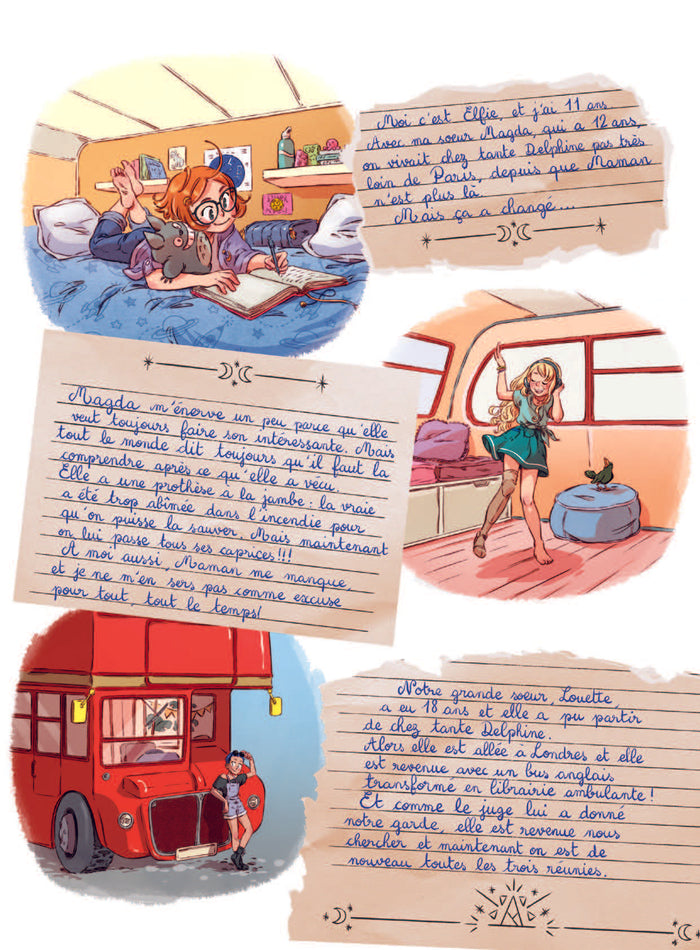 Moi c'est Elfie, et j'ai 11 ans
Avec ma sœur Magda, qui a 12 ans,
on vivait chez tante Delphine pas très
loin de Paris, depuis que Maman
n'est plus là.
Mais ça a changé...
Magda m'énerve un peu parce qu'elle
veut toujours faire son intéressante. Mais
tout le monde dit toujours qu'il faut la
comprendre après ce qu'elle a vécu.
Elle a une prothèse à la jambe : la vraie
a été trop abîmée dans l'incendie pour
qu'on puisse la sauver. Mais maintenant
on lui passe tous ses caprices!!!
A moi aussi, Maman me manque,
et je ne m'en sers pas comme excuse
pour tout, tout le temps!
Notre grande sœur, Louette,
a eu 18 ans et elle a pu partir
de chez tante Delphine.
Alors elle est allée à Londres et elle
est revenue avec un bus anglais
transformé en librairie ambulante!
Et comme le juge lui a donné
notre garde, elle est revenue nous
chercher et maintenant on est de
nouveau toutes les trois réunies.